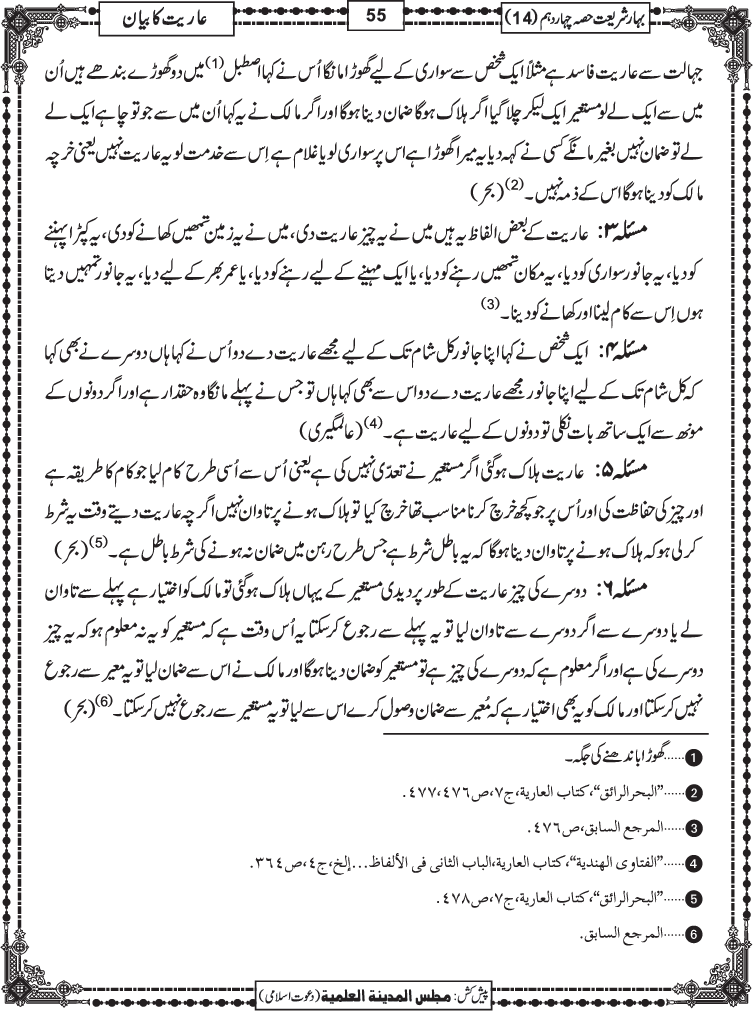 بہار شریعت حصہ چہاردہم (14)
55
عاریت کا بیان
جہالت سے عاریت فاسد ہے مثلاً ایک شخص سے سواری کے لیے گھوڑا مانگا اُس نے کہا اصطبل(1) میں دو گھوڑے بندھے ہیں اُن
میں سے ایک لے لو مستعیر ایک لیکر چلا گیا اگر ہلاک ہوگا ضمان دینا ہوگا اور اگر مالک نے یہ کہا اُن میں سے جو تو چاہے ایک لے
لے تو ضمان نہیں بغیر مانگے کسی نے کہہ دیا یہ میرا گھوڑا ہے اس پر سواری لو یا غلام ہے اِس سے خدمت لو یہ عاریت نہیں یعنی خرچہ
مالک کو دینا ہوگا اس کے ذمہ نہیں۔(2) (بحر)
مسئلہ ۳: عاریت کے بعض الفاظ یہ ہیں میں نے یہ چیز عاریت دی، میں نے یہ زمین تمھیں کھانے کو دی، یہ کپڑا پہننے
کو دیا، یہ جانور سواری کو دیا، یہ مکان تمھیں رہنے کو دیا، یا ایک مہینے کے لیے رہنے کو دیا، یا عمر بھر کے لیے دیا، یہ جانور تمہیں دیتا
ہوں اِس سے کام لینا اور کھانے کو دینا۔(3)
مسئلہ ۴: ایک شخص نے کہا اپنا جانور کل شام تک کے لیے مجھے عاریت دے دو اُس نے کہا ہاں دوسرے نے بھی کہا
کہ کل شام تک کے لیے اپنا جانور مجھے عاریت دے دو اس سے بھی کہا ہاں تو جس نے پہلے مانگا وہ حقدار ہے اور اگر دونوں کے
مونھ سے ایک ساتھ بات نکلی تو دونوں کے لیے عاریت ہے۔(4) (عالمگیری)
مسئلہ ۵: عاریت ہلاک ہوگئی اگر مستعیر نے تعدّی نہیں کی ہے یعنی اُس سے اُسی طرح کام لیا جو کام کا طریقہ ہے
اور چیز کی حفاظت کی اور اُس پر جو کچھ خرچ کرنا مناسب تھا خرچ کیا تو ہلاک ہونے پر تاوان نہیں اگرچہ عاریت دیتے وقت یہ شرط
کرلی ہو کہ ہلاک ہونے پر تاوان دینا ہوگا کہ یہ باطل شرط ہے جس طرح رہن میں ضمان نہ ہونے کی شرط باطل ہے۔(5) (بحر)
مسئلہ ۶: دوسرے کی چیز عاریت کے طور پر دیدی مستعیر کے یہاں ہلاک ہوگئی تو مالک کو اختیار ہے پہلے سے تاوان
لے یا دوسرے سے اگر دوسرے سے تاوان لیا تو یہ پہلے سے رجوع کرسکتا یہ اُس وقت ہے کہ مستعیر کو یہ نہ معلوم ہو کہ یہ چیز
دوسرے کی ہے اور اگر معلوم ہے کہ دوسرے کی چیز ہے تو مستعیر کو ضمان دینا ہوگا اور مالک نے اس سے ضمان لیا تو یہ معیر سے رجوع
نہیں کرسکتا اور مالک کو یہ بھی اختیار ہے کہ مُعیر سے ضمان وصول کرے اس سے لیا تو یہ مستعیر سے رجوع نہیں کرسکتا۔(6) (بحر)
1......گھوڑا باندھنے کی جگہ۔
2......"البحرالرائق"، کتاب العاریة، ج۷، ص۴۷۶،۴۷۷.
3......المرجع السابق، ص۴۷۶.
4......"الفتاوی الهندیة"، کتاب العاریة، الباب الثانی فی الألفاظ...إلخ، ج۴، ص۳۶۴.
5......"البحرالرائق"، کتاب العاریة، ج۷، ص۴۷۸.
6......المرجع السابق.
پیش کش: مجلس المدینة العلمیة (دعوت اسلامی)